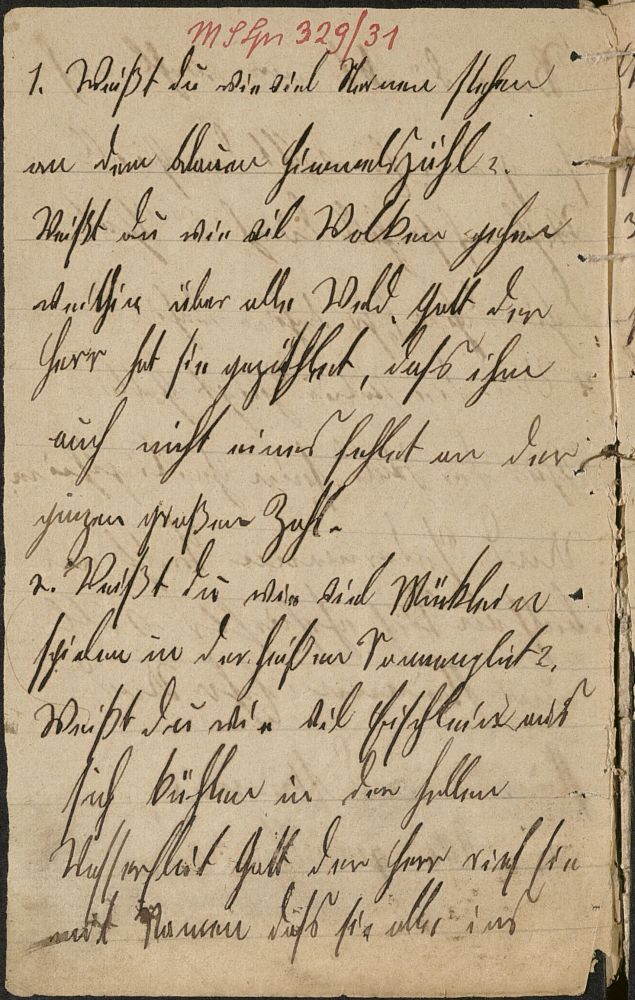 MS Gr 329/31
1. Weißt du wie viel Sternen stehen
an dem blauen Himmelszühl?.
Weißt du wie vil Wolken gehen
weithin über alle Weld. Gott der
Herr hat sie gezühlet, dass ihm
auch nicht eines fehlet an der
ganzen großen Zahl.
2. Weißt du wie viel Mücklein
spielen in der heißen Sonnenglut?.
Weißt du wie vil Fischlein auch
sich kühlen in der hellen
Wasserflut Gott der Herr rief sie
mit Namen daß sie alle ins